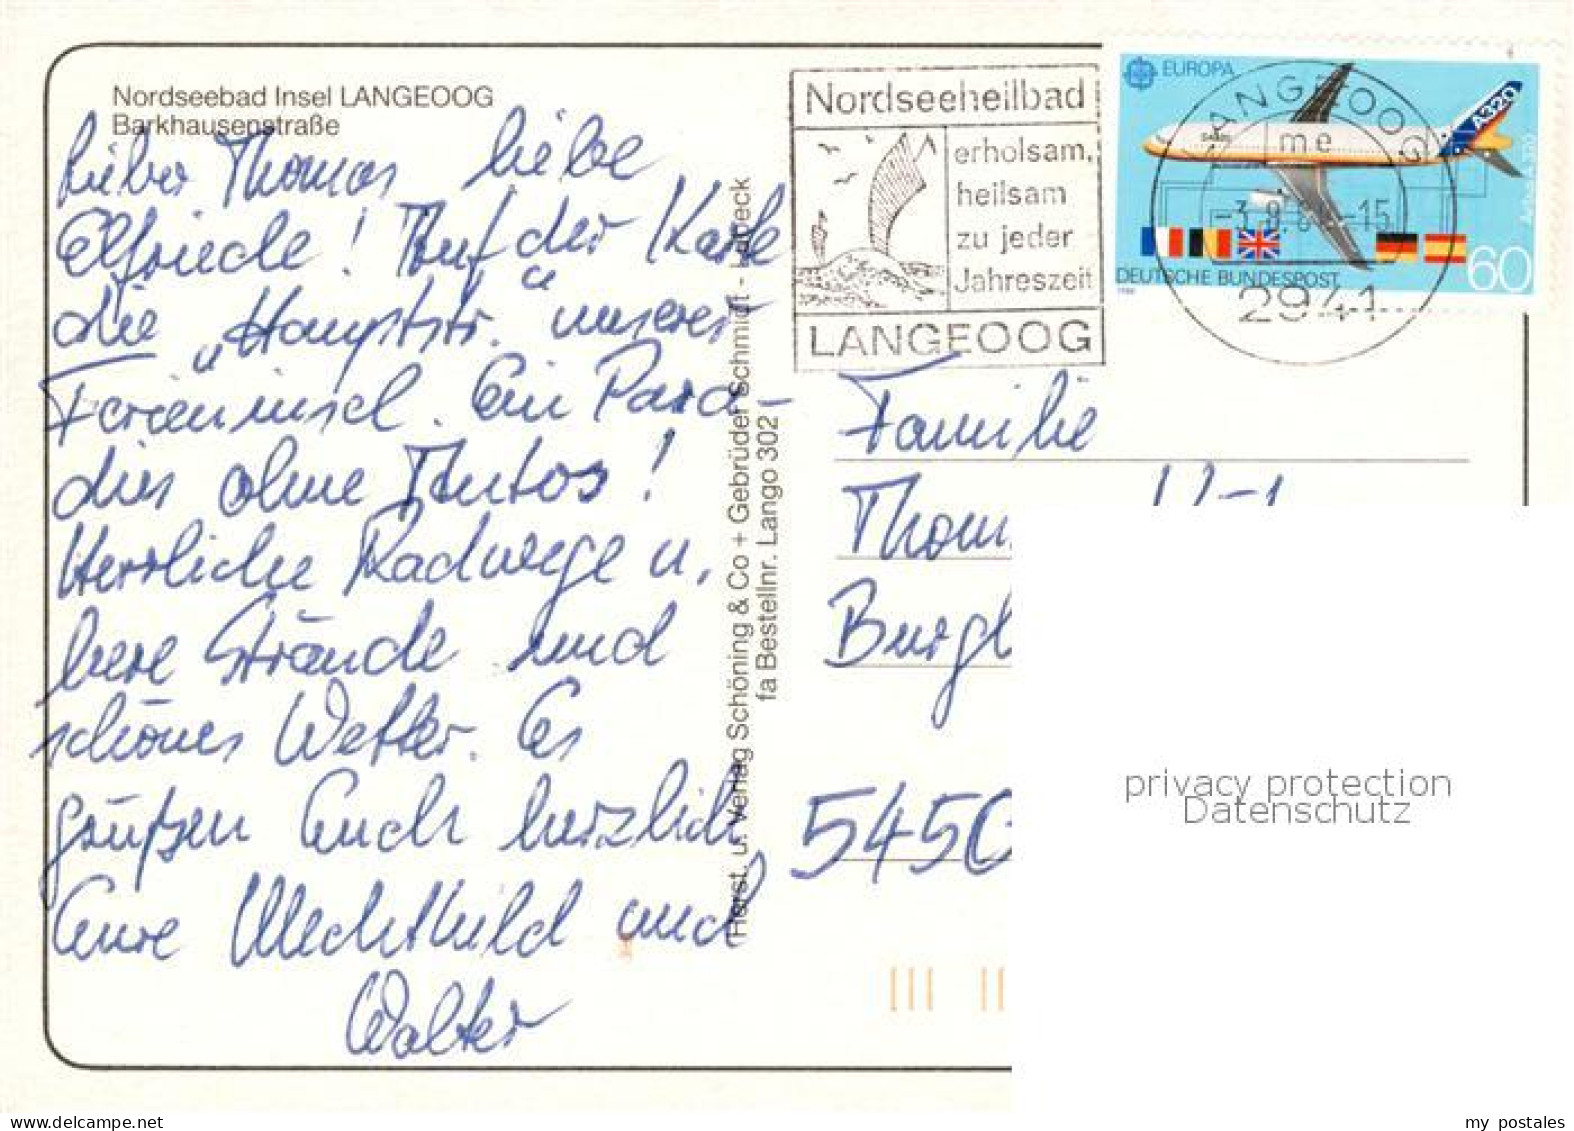 Nordseebad Insel LANGEOOG
Barkhausenstraße
Lieber Thomas liebe
Elfriede! Auf der Karte
die „Hauptstr." unserer
Ferieninsel. Ein Para-
dies ohne Autos!
Herrliche Radwege u.
leere Strände und
schönes Wetter. Es
grüßen Euch herzlich
Eure Mechthild und
Walter
Horst. u. Verlag Schöning & Co + Gebrüder Schmidt - Lübeck
fa Bestellnr. Lango 302
Nordseeheilbad
erholsam,
heilsam
zu jeder
Jahreszeit
LANGEOOG
EUROPA
A320
Airbus A320
DEUTSCHE BUNDESPOST
60
1988
LANGEOOG
me
-3.8.88-15
2941
Familie
Thom
Burgb
5450
privacy protection
Datenschutz
www.delcampe.net
my postales